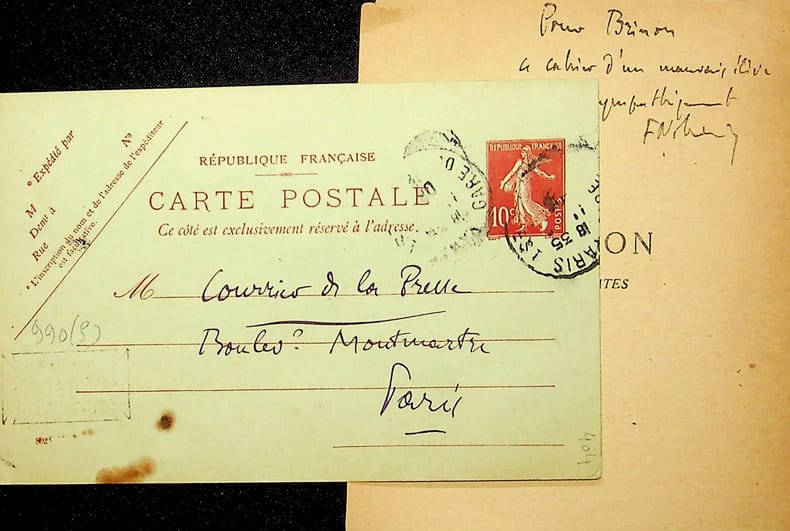 Pour Brinon
ce cahier d'un mauvais élève
sympathiquement
RÉPUBLIQUE FRANÇAISE
CARTE POSTALE
Ce côté est exclusivement réservé à l'adresse.
* Expédié par
M
Demt à
Rue
N°
* L'inscription du nom et de l'adresse de l'expéditeur
est facultative.
RÉPUBLIQUE FRANÇAISE
10c
POSTES
GARE D
PARIS
18 35
11
ON
TES
M Courrier de la Presse
Boulevd Montmartre
Paris
990(5)
404